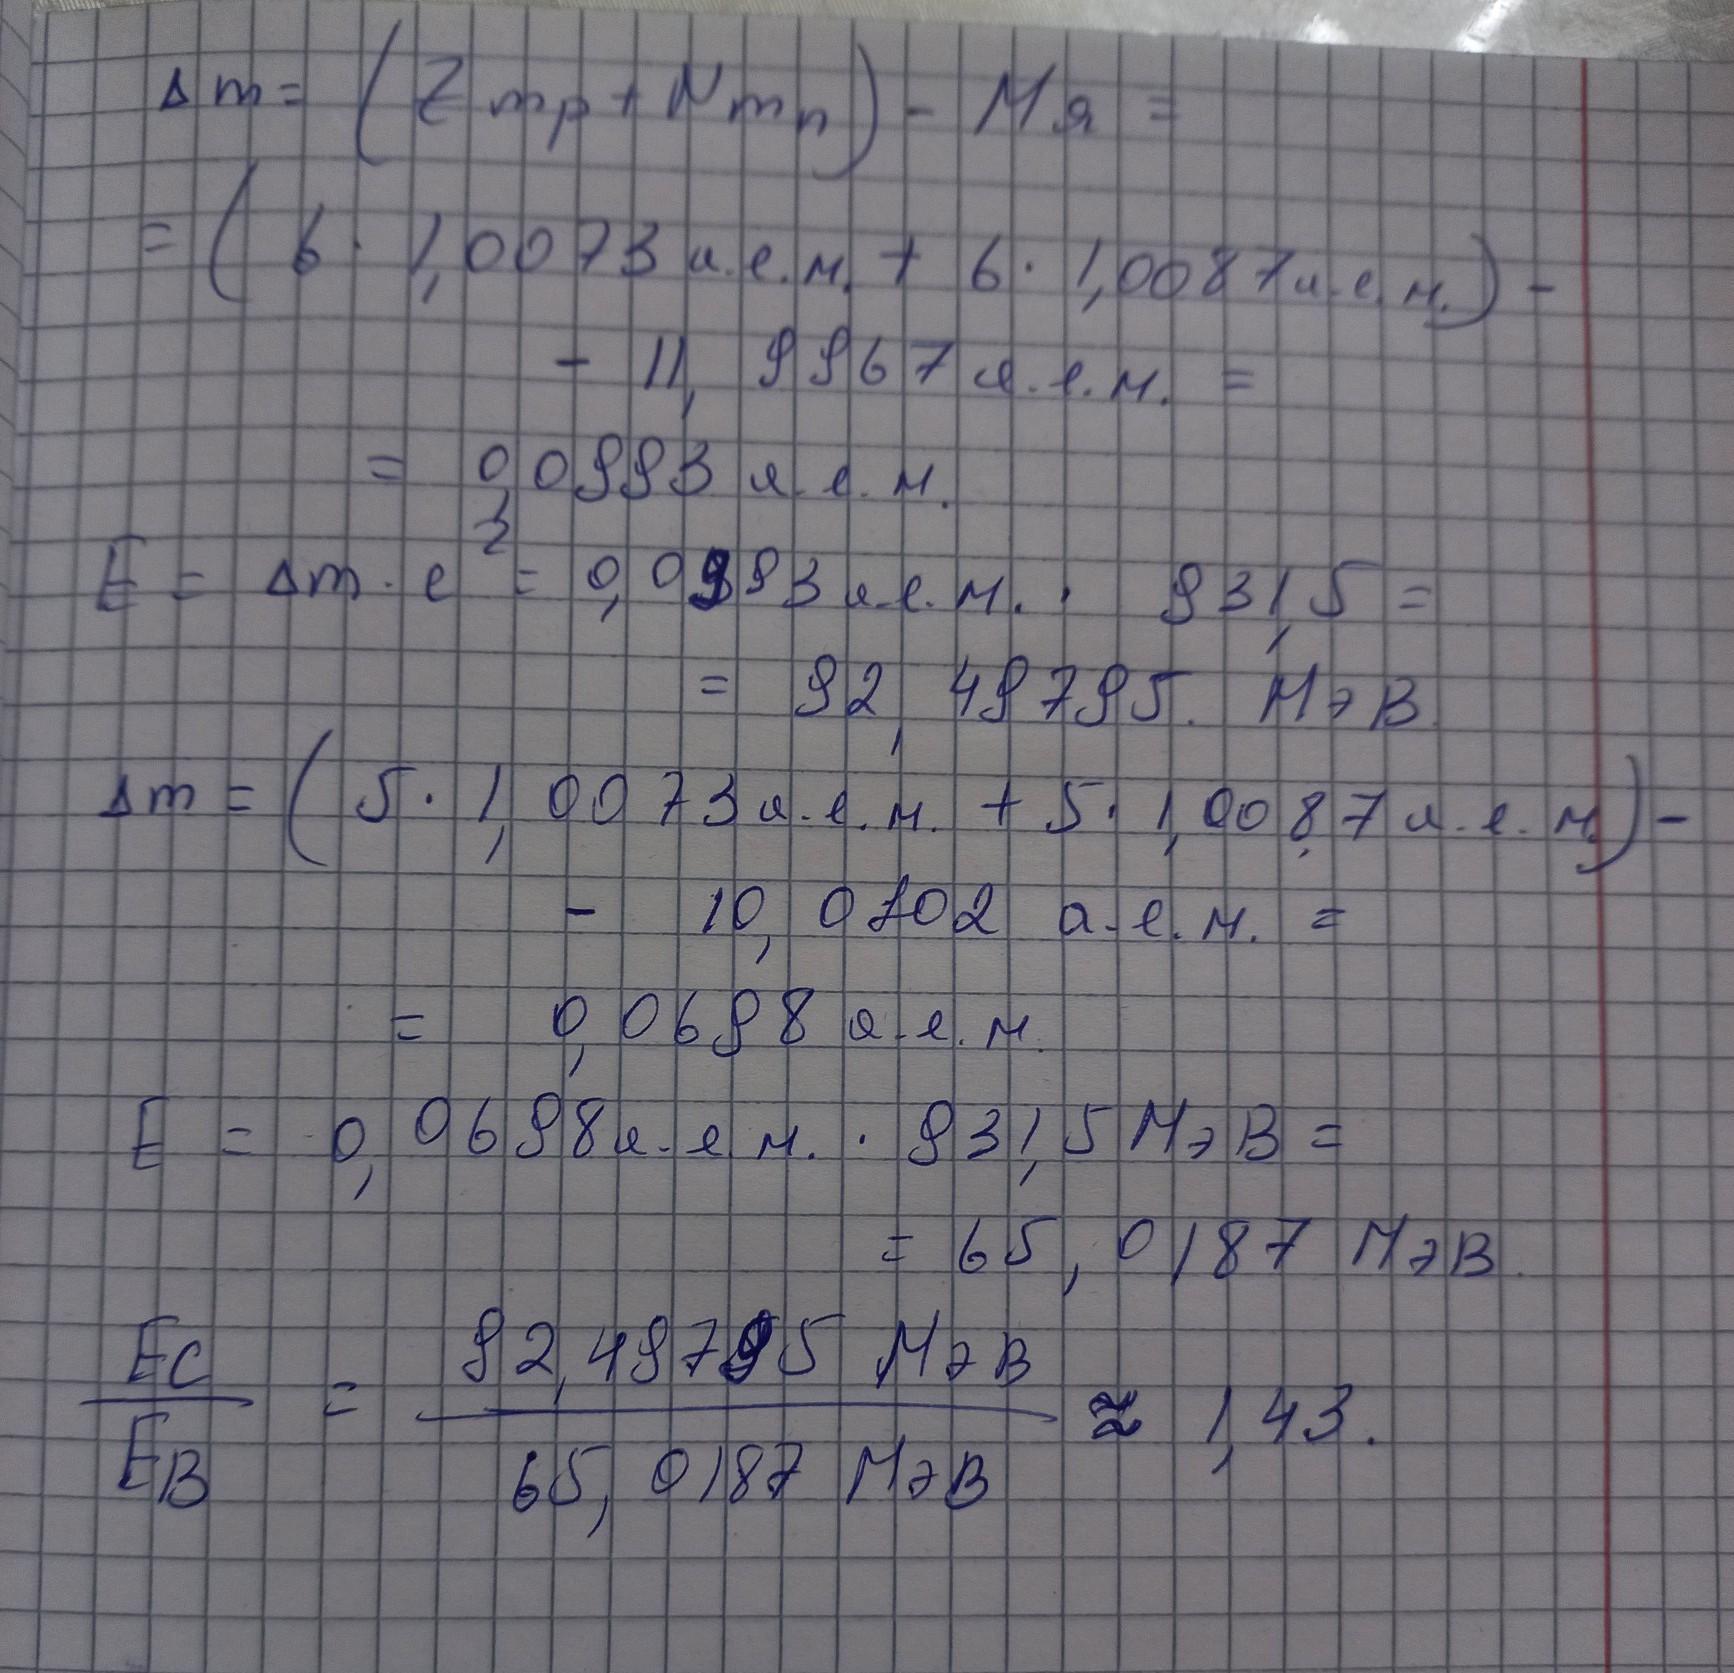 Δm = (Zmp + Nmn) - Mя =
= (6 · 1,0073 а.е.м. + 6 · 1,0087 а.е.м.) -
- 11,9967 а.е.м. =
= 0,0993 а.е.м.
E = Δm · c² = 0,0993 а.е.м. · 931,5 =
= 92,49795 МэВ
Δm = (5 · 1,0073 а.е.м. + 5 · 1,0087 а.е.м) -
- 10,0102 а.е.м. =
= 0,0698 а.е.м.
E = 0,0698 а.е.м. · 931,5 МэВ =
= 65,0187 МэВ.
EC / EB = 92,49795 МэВ / 65,0187 МэВ ≈ 1,43.